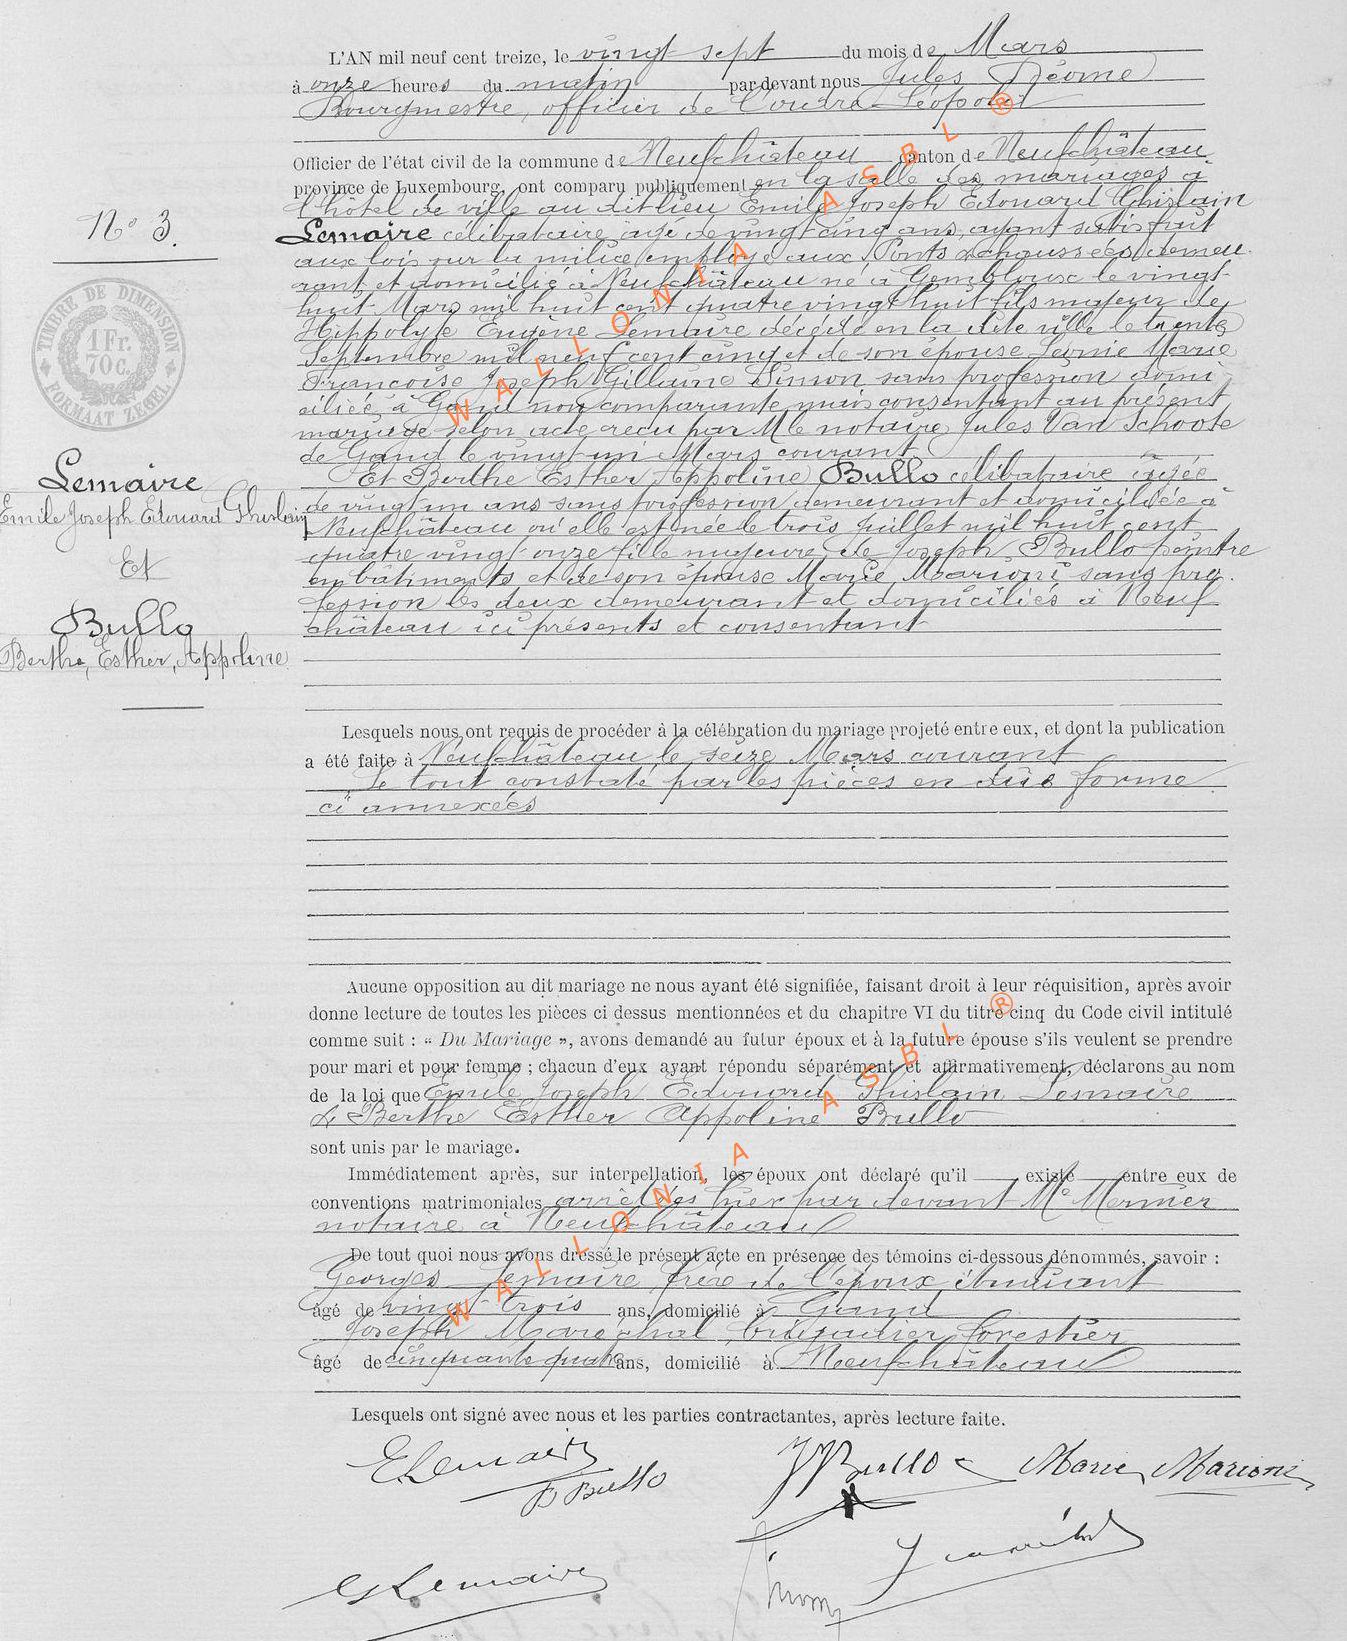 L'AN mil neuf cent treize, le vingt sept du mois de Mars
à onze heures du matin par devant nous Jules
Bourgmestre, officier de l'ordre Léopold
Officier de l'état civil de la commune de Neufchâteau canton de Neufchâteau
province de Luxembourg, ont comparu publiquement en la salle des mariages à
l'hôtel de ville au dit lieu Emile Joseph Edouard Ghislain
Nº 3.
Lemaire célibataire âgé de vingt cinq ans, ayant satisfait
aux lois sur la milice employé aux Ponts & chaussées demeu
rant et domicilié à Neufchâteau né à Gembloux le vingt
huit Mars mil huit cent quatre vingt huit fils majeur de
Hippolyte Eugène Lemaire décédé en la dite ville le trente
Septembre mil neuf cent cinq et de son épouse Léonie Marie
Françoise Joseph Simon sans profession domi
ciliée à Gand non comparante mais consentant au présent
mariage selon acte reçu par Me notaire Jules Van Schoote
de Gand le vingt un Mars courant
TIMBRE DE DIMENSION
1 Fr.
70 c.
FORMAAT ZEGEL.
Lemaire
Emile Joseph Edouard Ghislain
Et
Bullo
Berthe, Esther, Appoline
Et Berthe Esther Appoline Bullo célibataire âgée
de vingt un ans sans profession demeurant et domiciliée à
Neufchâteau où elle est née le trois Juillet mil huit cent
quatre vingt onze fille majeure de Joseph Bullo peintre
en bâtiments et de son épouse Marie Marioni sans pro
fession les deux demeurant et domiciliés à Neuf
château ici présents et consentant
Lesquels nous ont requis de procéder à la célébration du mariage projeté entre eux, et dont la publication
a été faite à Neufchâteau le seize Mars courant
Le tout constaté par les pièces en due forme
ci annexées
Aucune opposition au dit mariage ne nous ayant été signifiée, faisant droit à leur réquisition, après avoir
donne lecture de toutes les pièces ci dessus mentionnées et du chapitre VI du titre cinq du Code civil intitulé
comme suit : « Du Mariage », avons demandé au futur époux et à la future épouse s'ils veulent se prendre
pour mari et pour femme ; chacun d'eux ayant répondu séparément et affirmativement, déclarons au nom
de la loi que Emile Joseph Edouard Ghislain Lemaire
& Berthe Esther Appoline Bullo
sont unis par le mariage.
Immédiatement après, sur interpellation, les époux ont déclaré qu'il existe entre eux de
conventions matrimoniales arrêtées hier par devant Me
notaire à Neufchâteau
De tout quoi nous avons dressé le présent acte en présence des témoins ci-dessous dénommés, savoir :
Georges Lemaire frère de l'époux, étudiant
âgé de vingt trois ans, domicilié à Gand
Joseph Maréchal, brigadier forestier
âgé de cinquante quatre ans, domicilié à Neufchâteau
Lesquels ont signé avec nous et les parties contractantes, après lecture faite.
E Lemaire
B Bullo
J Bullo
Marie Marioni
G Lemaire
WALLONIA ASBL ®
WALLONIA ASBL ®